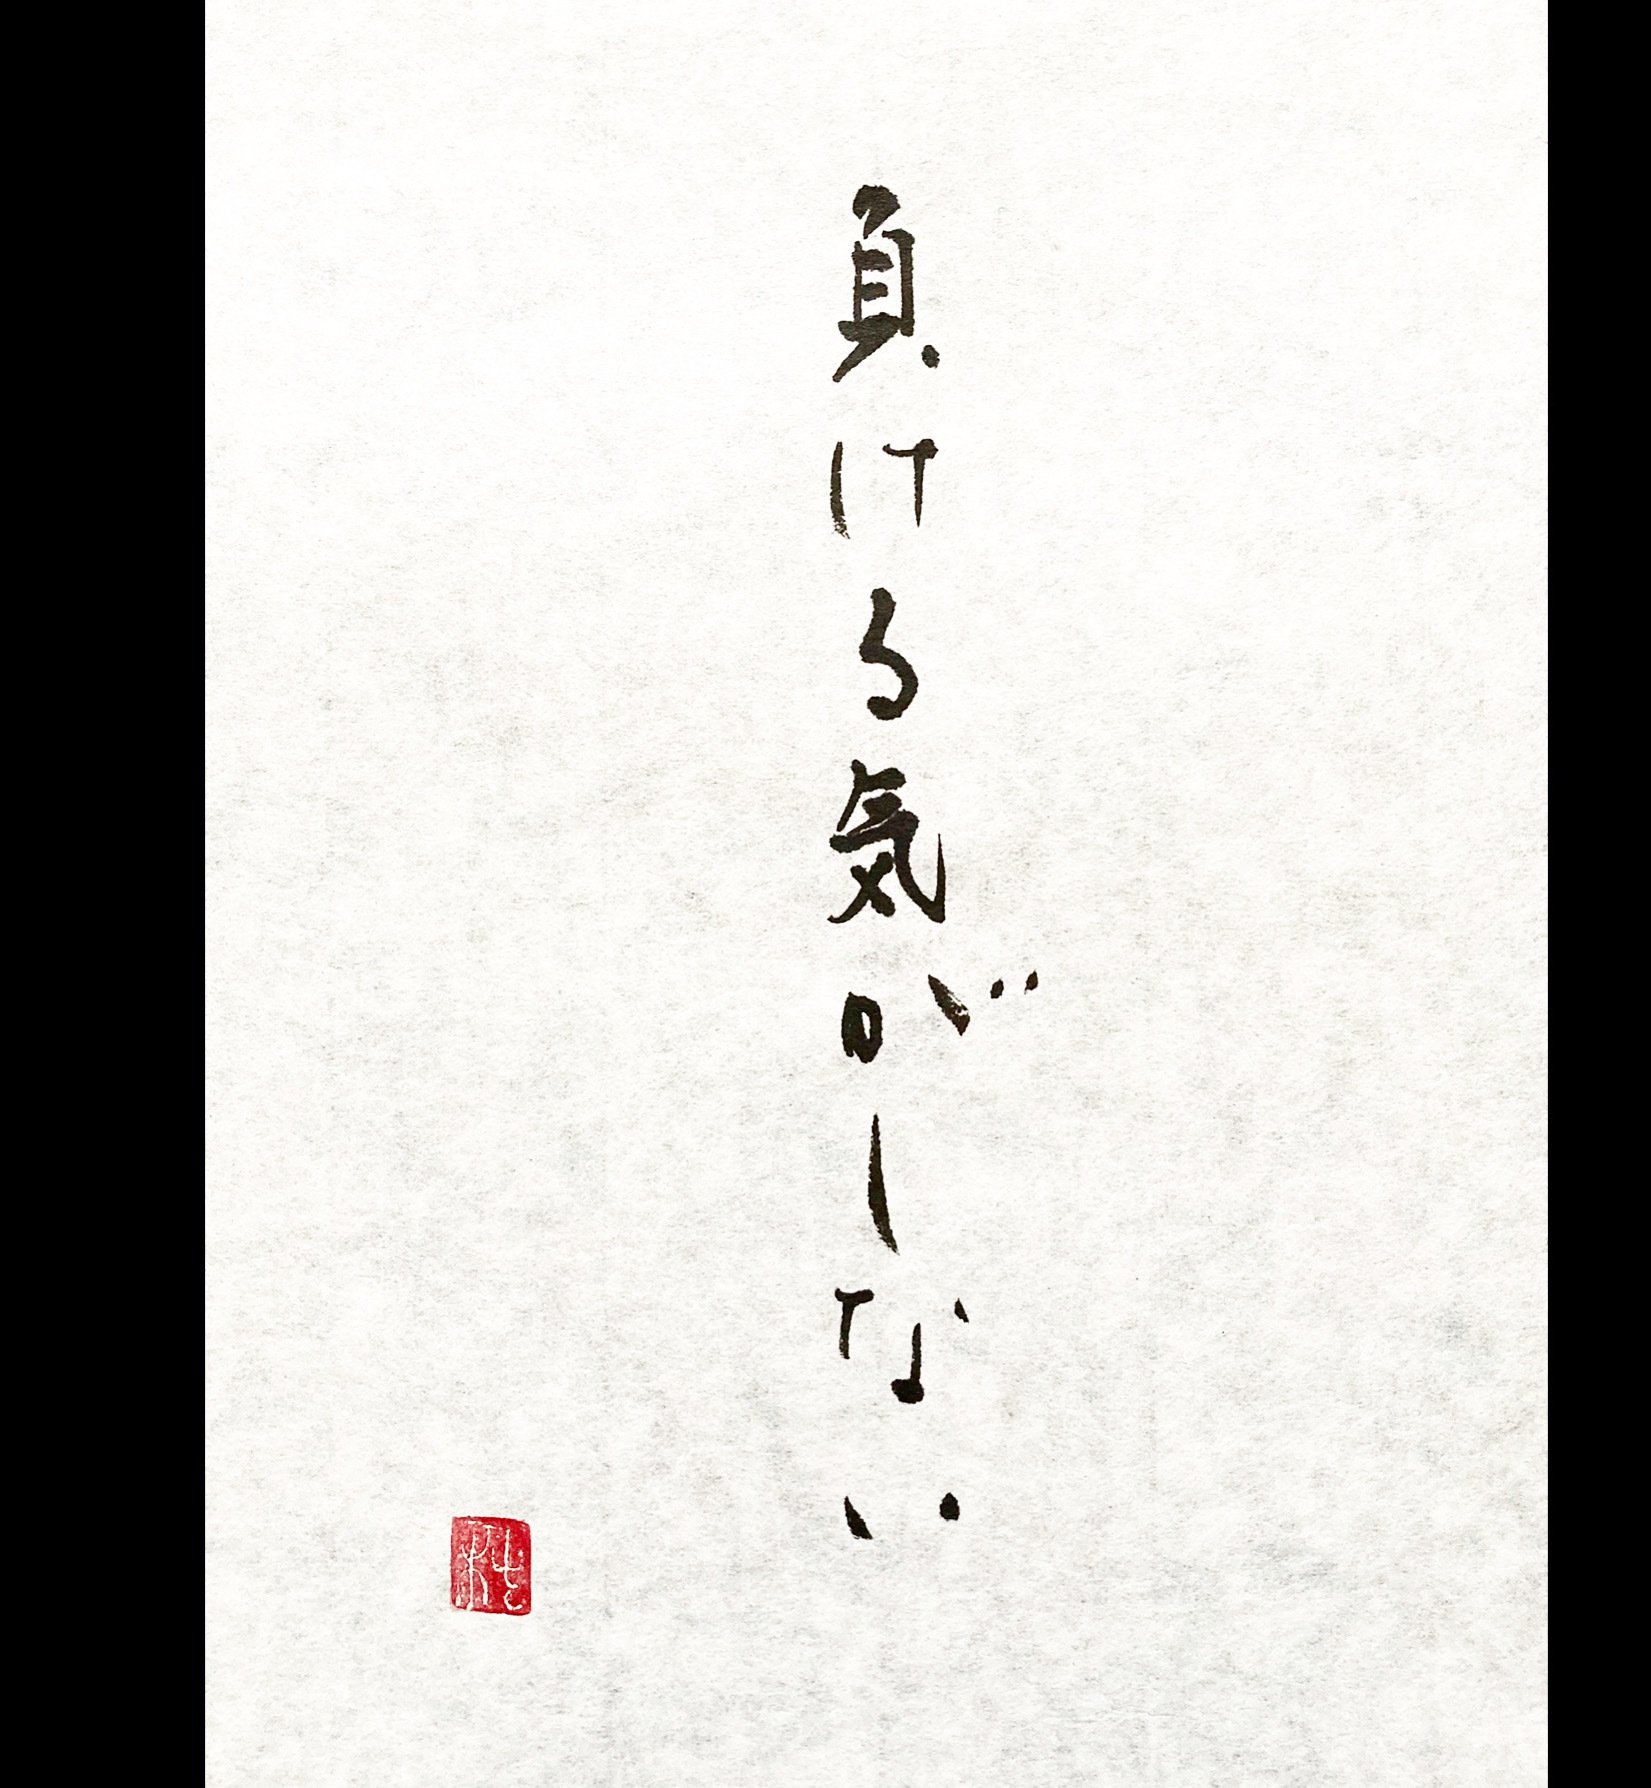 負ける気がしない